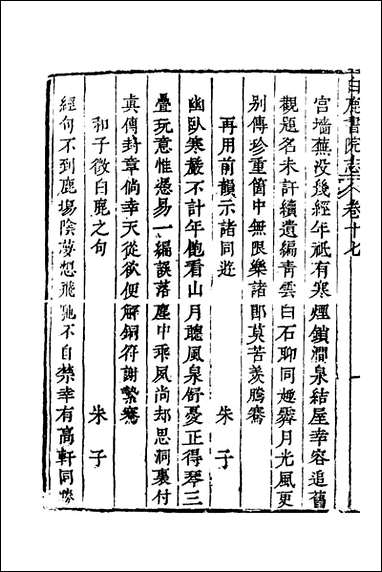 白鹿書院志 卷十七
宮墻蕪没幾經年祇有寒煙鎖澗泉結屋幸容追舊
觀題名未許續遺編青雲白石聊同趣霽月光風更
别傳珍重箇中無限樂諸郎莫苦羡騰騫
再用前韻示諸同遊 朱子
幽臥寒巖不計年飽看山月聽風泉舒憂正得琴三
疊玩意惟慿易一編誤落塵中乘風尚却思洞裏付
眞傳封章倘幸天從欲便解銅符謝縶騫
和子徴白鹿之句 朱子
經旬不到鹿場陰夢想飛馳不自禁幸有高軒同勝